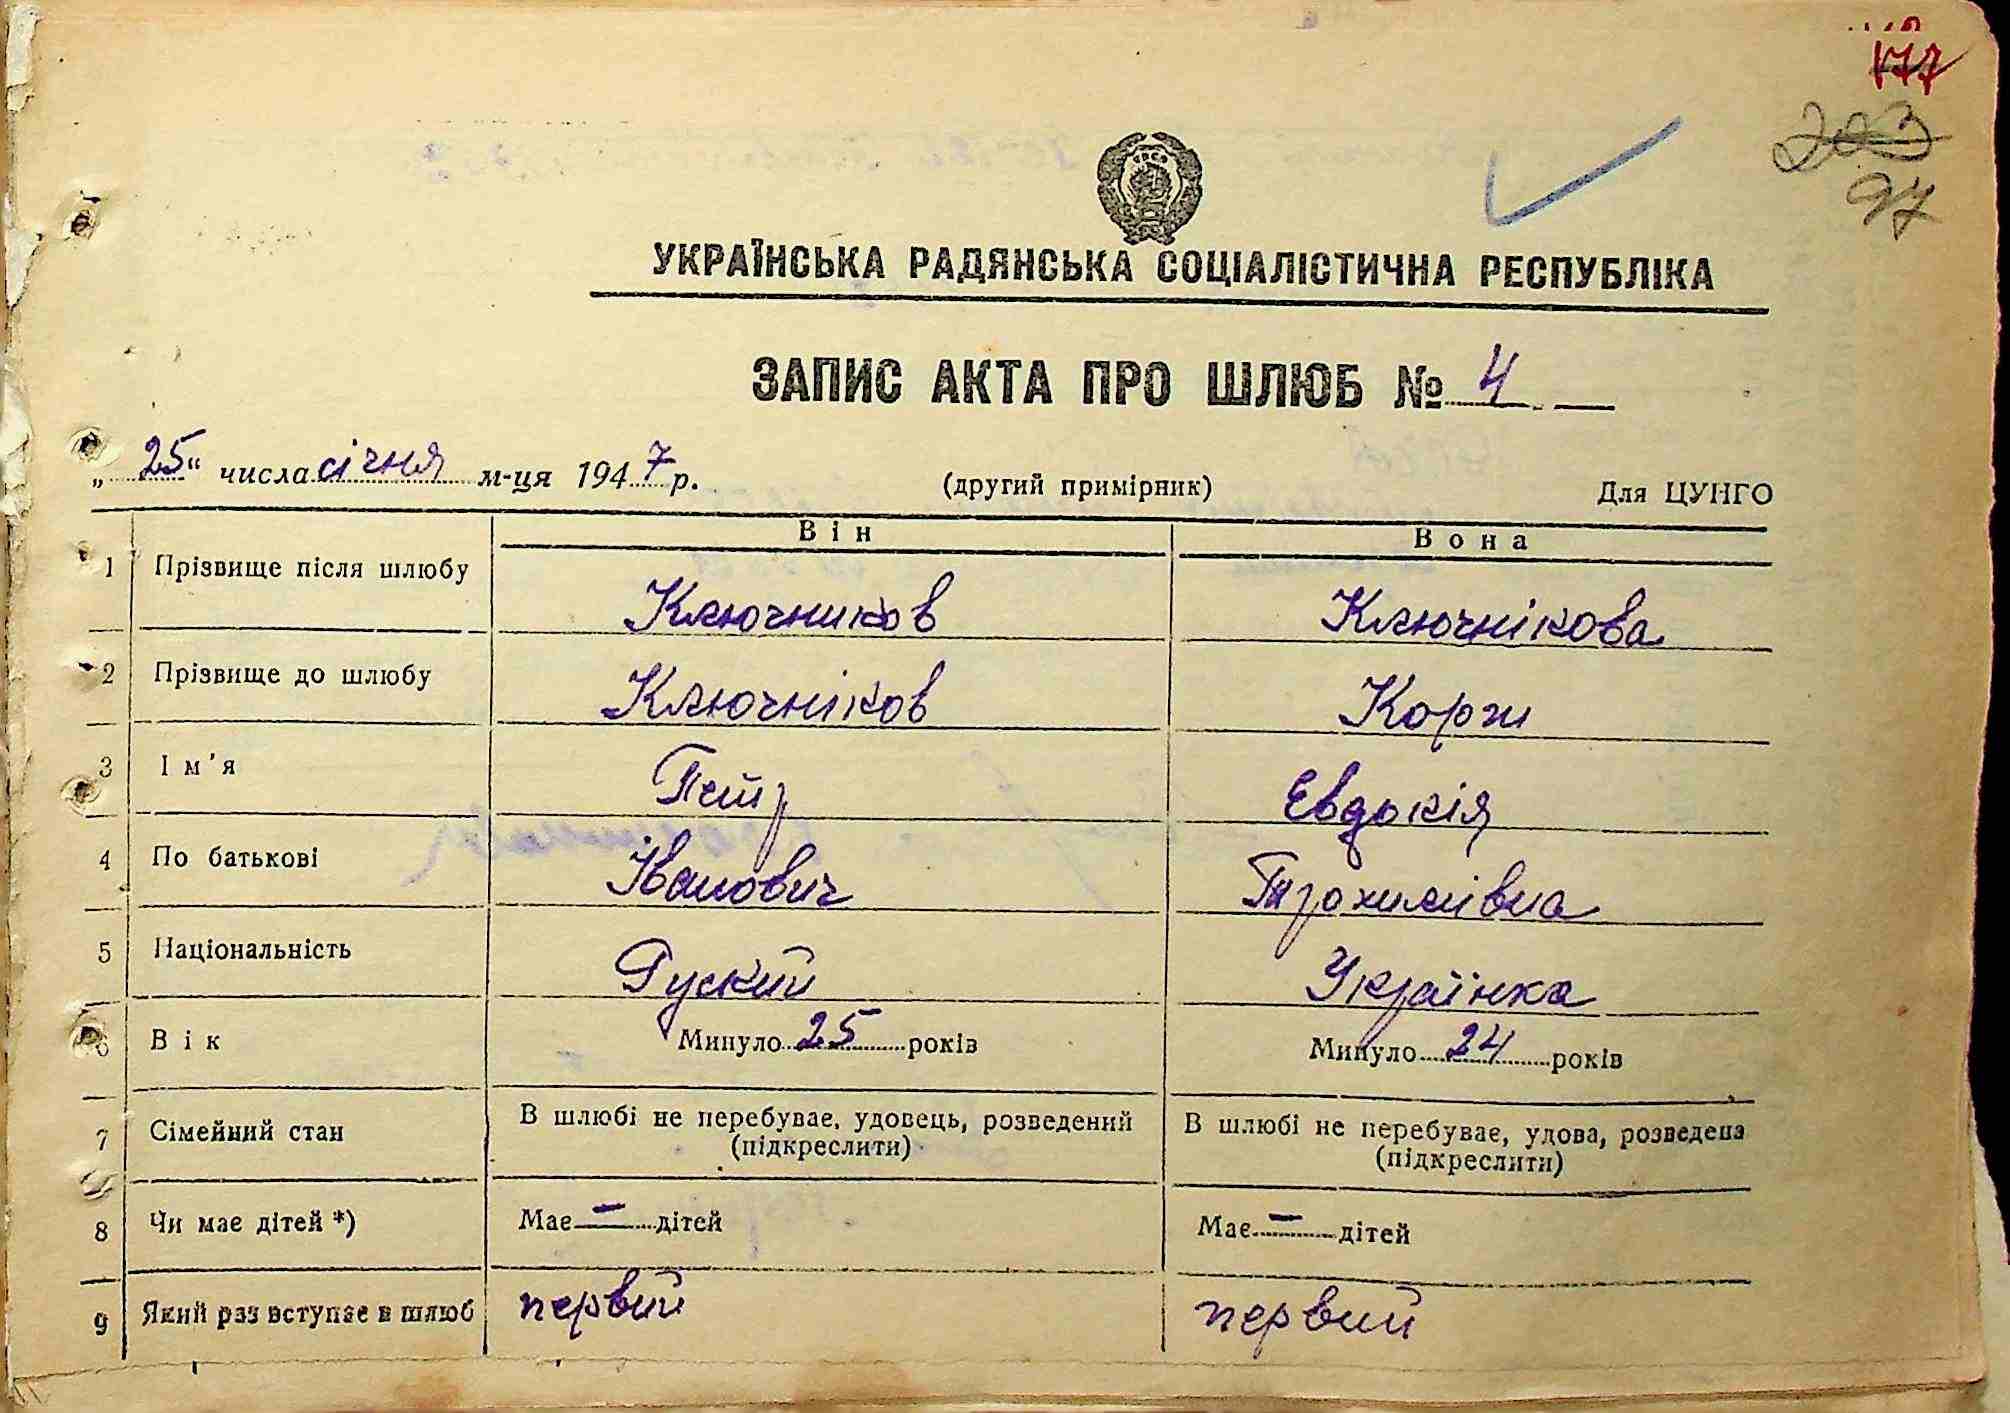 177
203
97
УКРАЇНСЬКА РАДЯНСЬКА СОЦІАЛІСТИЧНА РЕСПУБЛІКА
ЗАПИС АКТА ПРО ШЛЮБ № 4
„25“ числа січня м-ця 1947 р. (другий примірник) Для ЦУНГО
Він Вона
1 Прізвище після шлюбу Ключников Ключнікова
2 Прізвище до шлюбу Ключніков Корж
3 Ім'я Петр Евдокія
4 По батькові Іванович Трохимівна
5 Національність Руский Українка
6 Вік Минуло 25 років Минуло 24 років
7 Сімейний стан В шлюбі не перебуває, удовець, розведений (підкреслити) В шлюбі не перебуває, удова, розведена (підкреслити)
8 Чи має дітей *) Має — дітей Має — дітей
9 Який раз вступає в шлюб первий первий